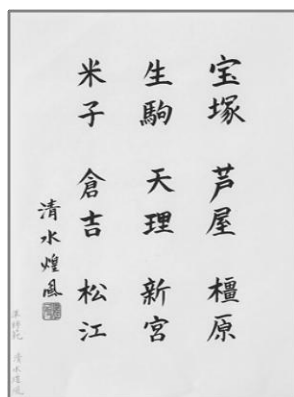 宝塚 芦屋 橿原
生駒 天理 新宮
米子 倉吉 松江
清水煌風